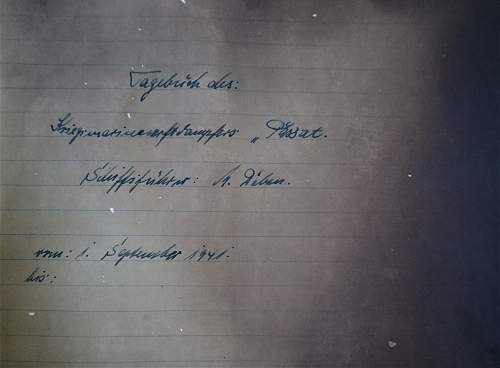 Tagebuch des:
Kriegsmarinewerftdampfers „Passat.
Schiffsführer: A.
vom: 1. September 1941.
bis: